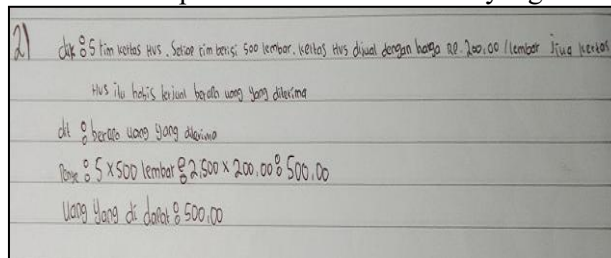 2) dik : 5 rim kertas HVS. Setiap rim berisi 500 lembar. kertas HVS dijual dengan harga RP. 200,00 / lembar Jika kertas
HVS itu habis terjual berapa uang yang diterima
dit : berapa uang yang diterima
Penye : 5 x 500 lembar : 2.500 x 200.00 : 500.00
Uang Yang di dapat : 500.00